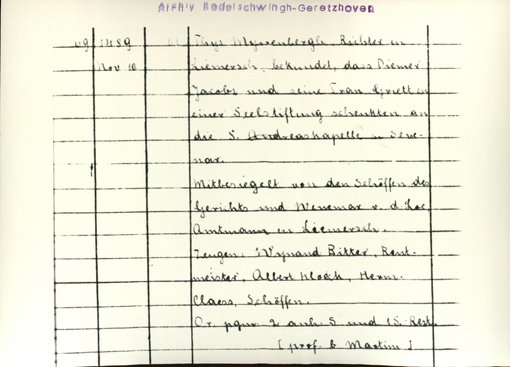 Archiv Bodelschwingh-Geretzhoven
69 1489 Thys Wywenbergh, Richter in
Nov. 10 Liemersch, bekundet, dass Diemer
Jacobs und seine Frau Griett in
einer Seelstiftung schenkten an
die S. Andreaskapelle in Seve-
nar.
Mitbesiegelt von den Schöffen des
Gerichts und Wenemar v. d. Loe
Amtmann in Liemersch.
Zeugen: Wynand Bitter, Rent-
meister, Albert Kloeck, Herm.
Claess, Schöffen.
Or. pgm. 2 anh. S. und 1 S. Rest.
[prof. b. Martini]